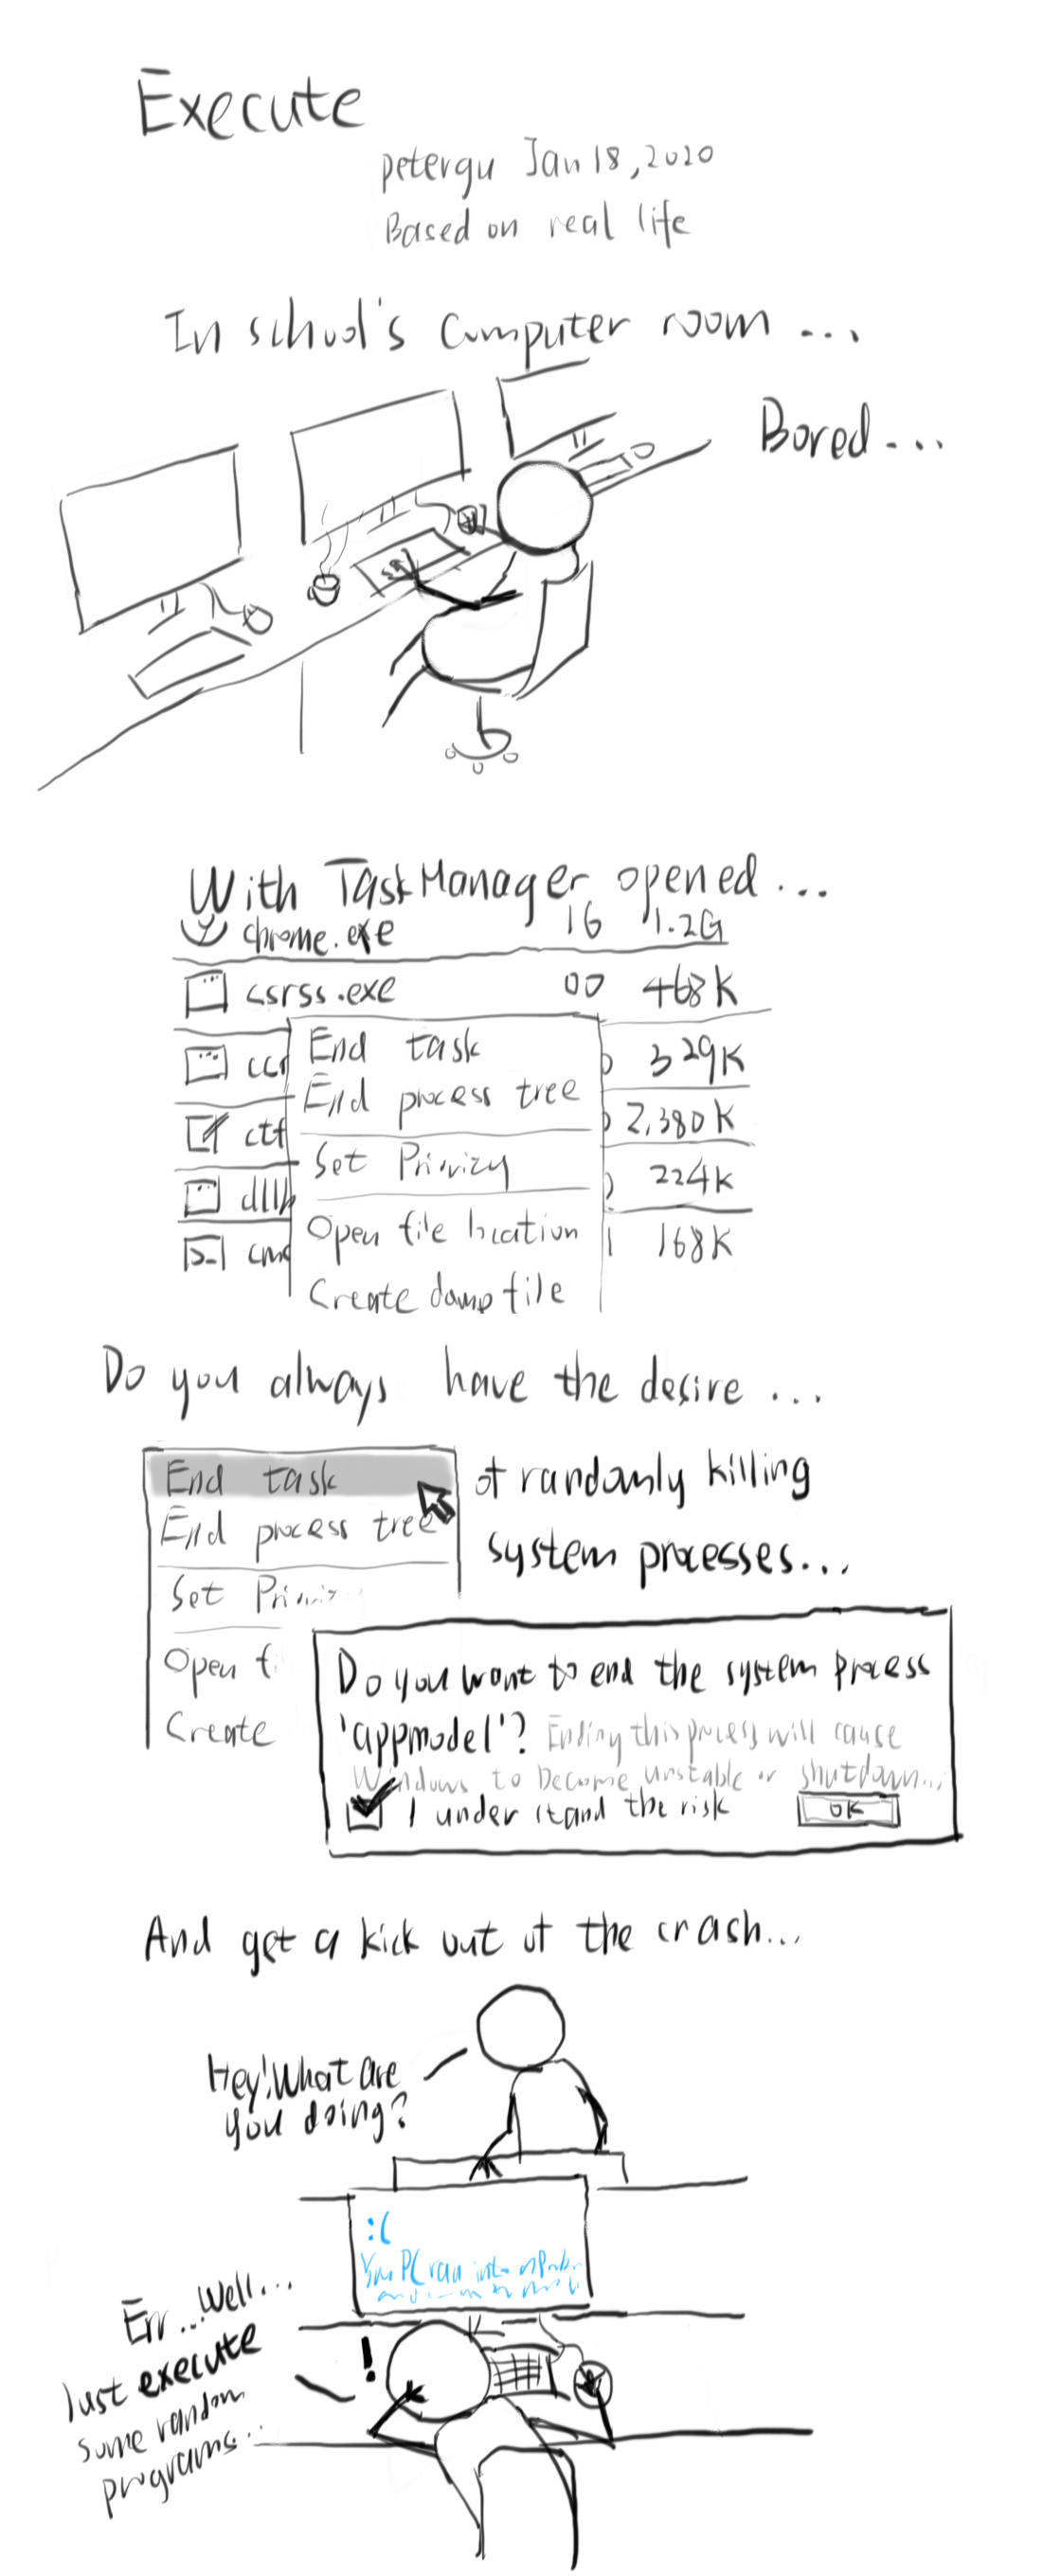 Execute
petergu Jan 18, 2020
Based on real life
In school's computer room ...
Bored...
With Task Manager opened ...
chrome.exe 16 1.2G
csrss.exe 00 468K
329K
ctf 2,380K
dllh 224K
cmd 168K
End task
End process tree
Set Priority
Open file location
Create dump file
Do you always have the desire ...
End task
End process tree
Set
Open fi
Create
of randomly killing
system processes...
Do you want to end the system process
'appmodel'? Ending this process will cause
Windows to become unstable or shutdown...
I understand the risk OK
And get a kick out of the crash...
Hey! What are
you doing?
:(
Your PC ran into a
Err...Well...
Just execute
some random
programs...
!